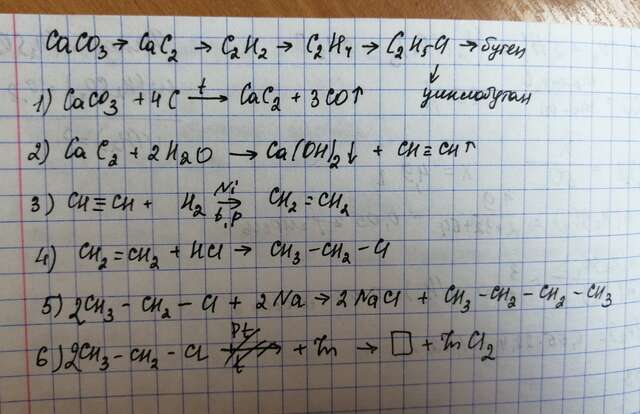 CaCO₃ → CaC₂ → C₂H₂ → C₂H₄ → C₂H₅Cl → бутен
↓
циклобутан
1) CaCO₃ + 4C →t CaC₂ + 3CO↑
2) CaC₂ + 2H₂O → Ca(OH)₂↓ + CH≡CH↑
3) CH≡CH + H₂ →Ni t,p CH₂=CH₂
4) CH₂=CH₂ + HCl → CH₃-CH₂-Cl
5) 2CH₃-CH₂-Cl + 2Na → 2NaCl + CH₃-CH₂-CH₂-CH₃
6) 2CH₃-CH₂-Cl + Zn → □ + ZnCl₂